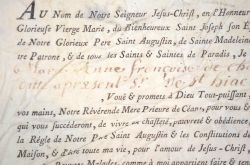 AU Nom de Notre Seigneur Jesus-Christ, en l'Honneur
Glorieuse Vierge Marie, du Bienheureux Saint Joseph son E
de Notre Glorieux Pere Saint Augustin, de Sainte Madelein
tre Patrone, & de tous les Saints & Saintes de Paradis, Je
Marie Anne françoise de
present
Vouë & promets à Dieu Tout-puissant,
vos mains, Notre Révérende Mere Prieure de Céans, pour vous
qui vous succéderont, de vivre en chasteté, pauvreté & obéïssance,
la Régle de Notre Pere Saint Augustin & les Constitutions de
Maison, & ce toute ma vie, pour l'amour de Jesus-Christ
Pauvres Malades, comme à moi appartient faire